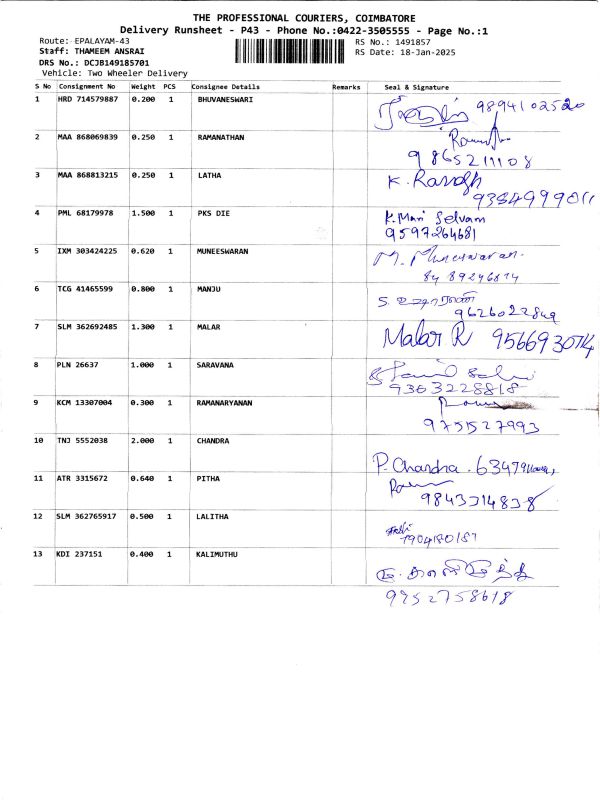 THE PROFESSIONAL COURIERS, COIMBATORE
Delivery Runsheet - P43 - Phone No.:0422-3505555 - Page No.:1
Route: EPALAYAM-43
RS No.: 1491857
Staff: THAMEEM ANSRAI
RS Date: 18-Jan-2025
DRS No.: DCJB149185701
Vehicle: Two Wheeler Delivery
S No Consignment No Weight PCS Consignee Details Remarks Seal & Signature
1 HRD 714579887 0.200 1 BHUVANESWARI 9894102520
2 MAA 868069839 0.250 1 RAMANATHAN
9865211108
3 MAA 868813215 0.250 1 LATHA K.
9384999011
4 PML 68179978 1.500 1 PKS DIE K. Mari Selvam
9597264681
5 IXM 303424225 0.620 1 MUNEESWARAN M. Muneeswaran.
8489246874
6 TCG 41465599 0.800 1 MANJU
9626022849
7 SLM 362692485 1.300 1 MALAR Malar R 9566930714
8 PLN 26637 1.000 1 SARAVANA
9363228818
9 KCM 13307004 0.300 1 RAMANARYANAN
9751527993
10 TNJ 5552038 2.000 1 CHANDRA P. Chandra.
11 ATR 3315672 0.640 1 PITHA
9843314838
12 SLM 362765917 0.500 1 LALITHA
13 KDI 237151 0.400 1 KALIMUTHU மு. காளிமுத்து
9752758618